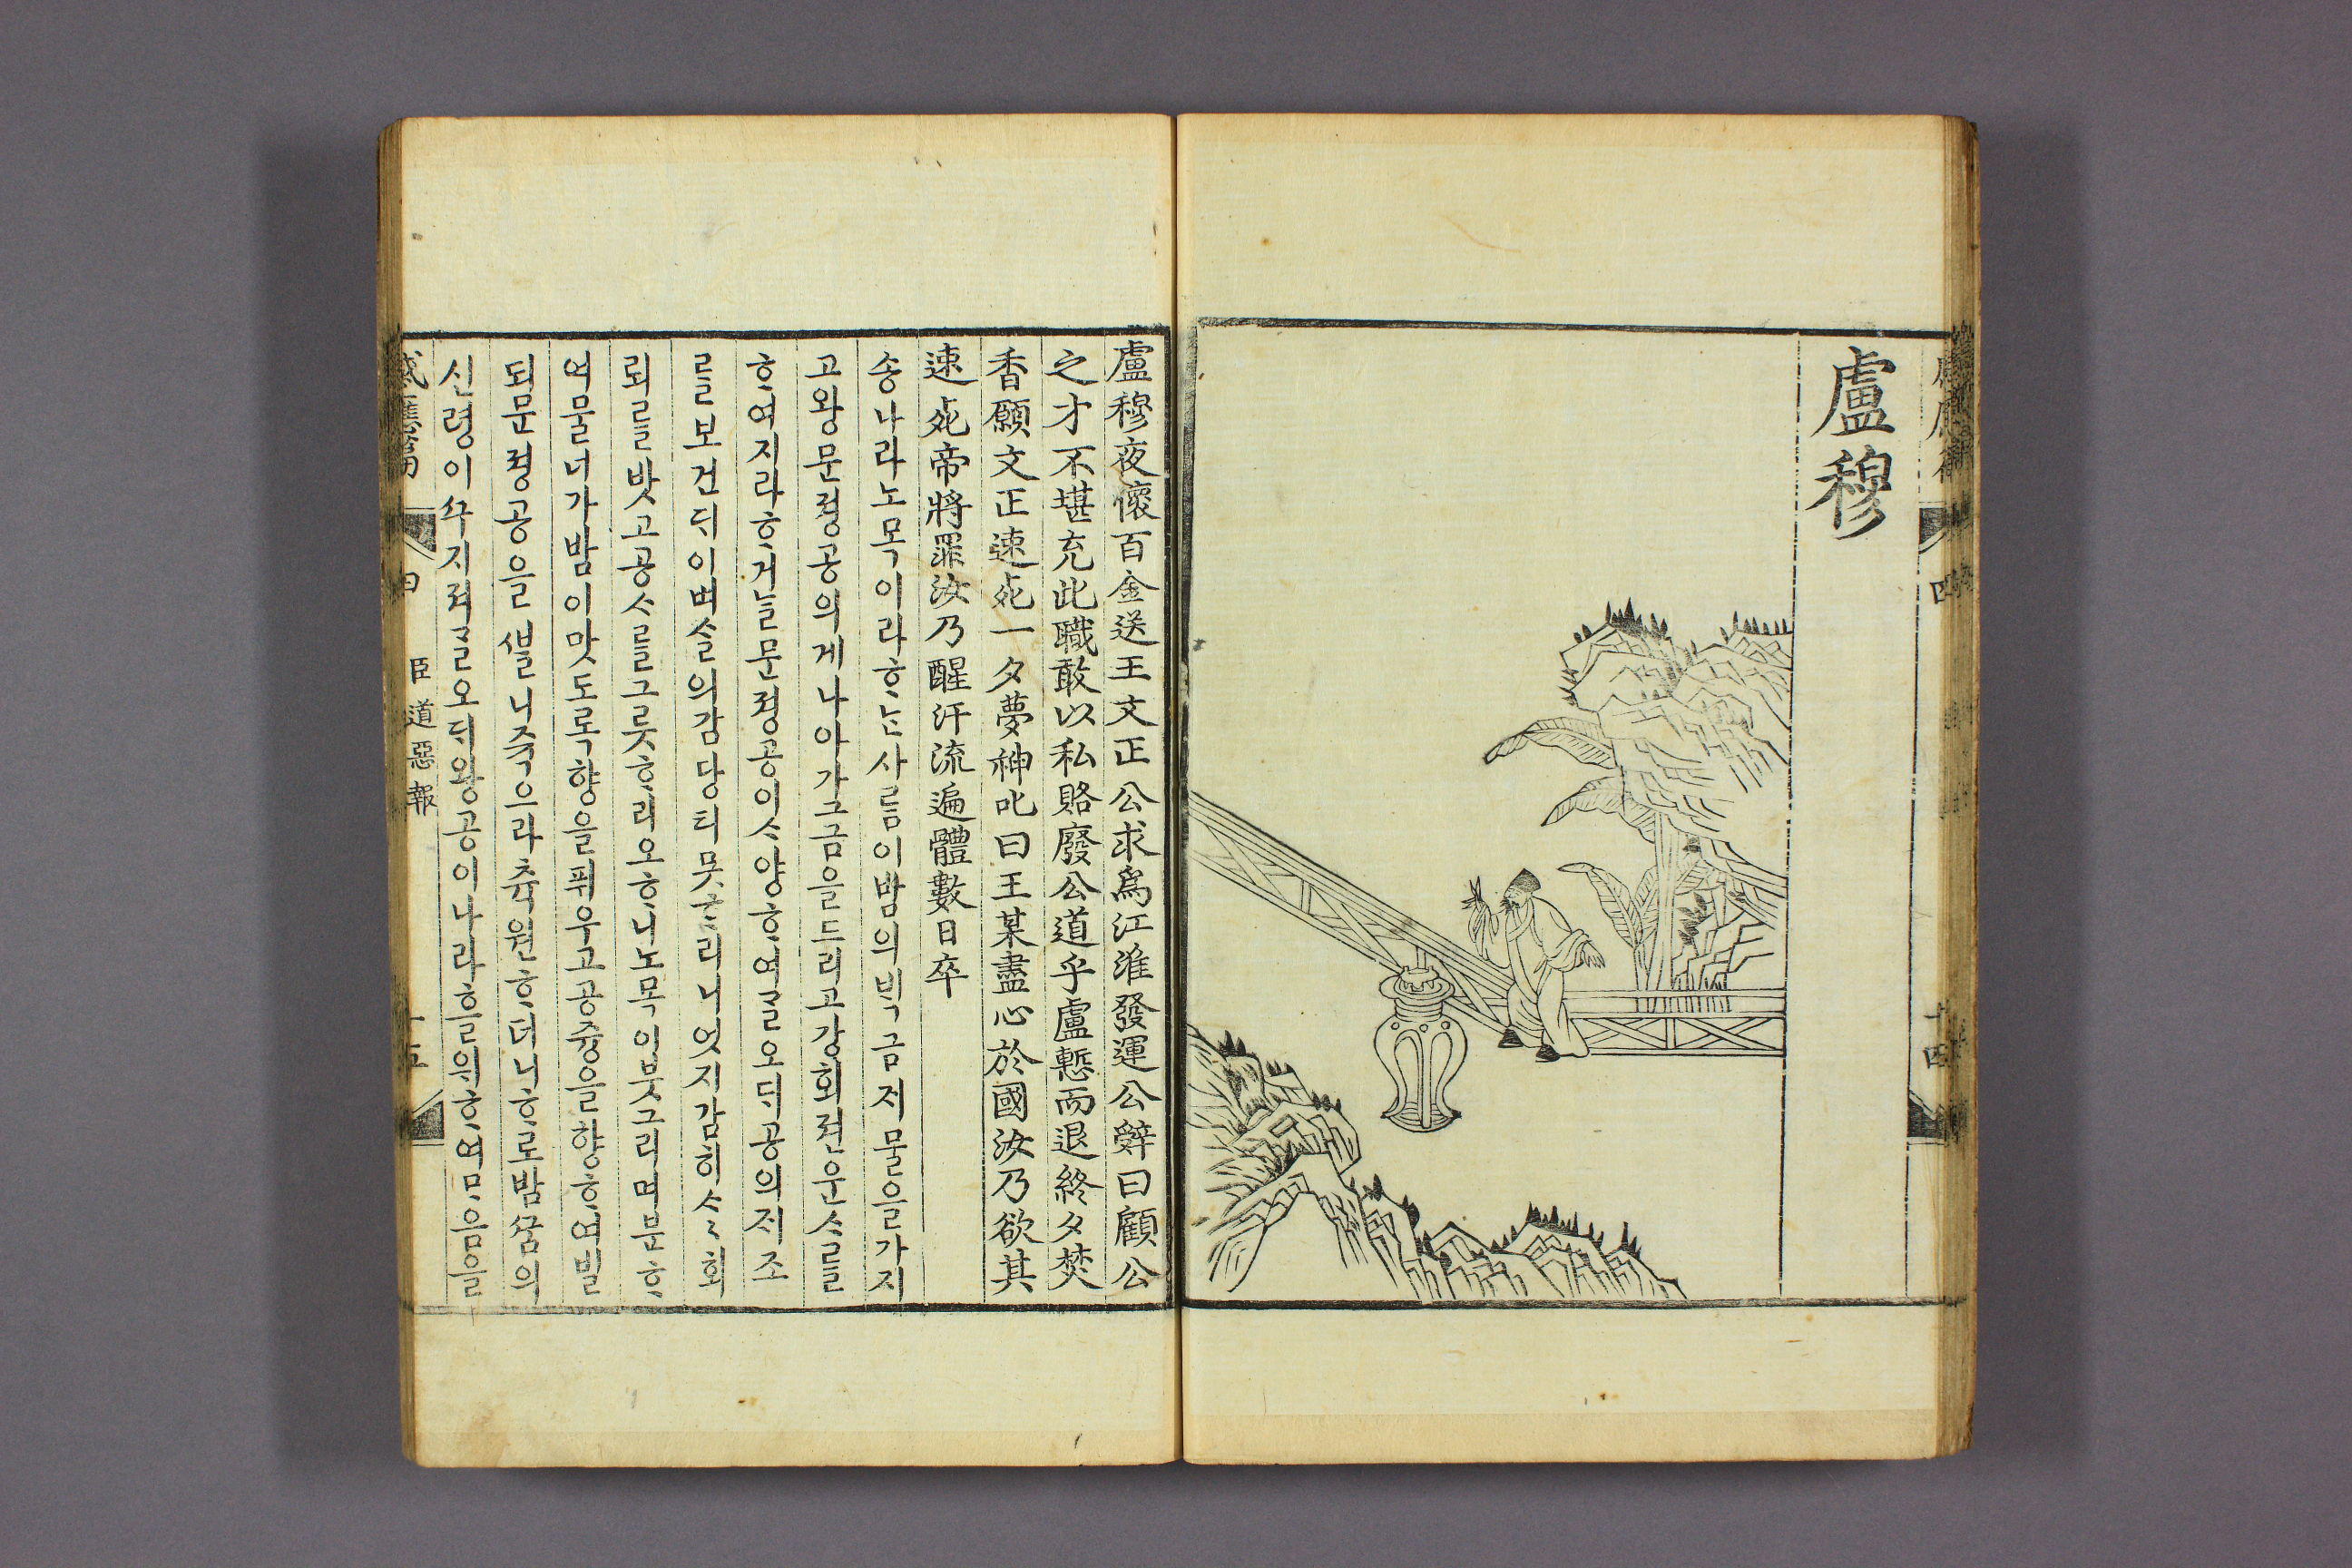 盧穆
盧穆夜懷百金送王文正公求爲江淮發運公辭曰顧公
之才不堪充此職敢以私賂廢公道乎盧慙而退終夕焚
香願文正速死一夕夢神叱曰王某盡心於國汝乃欲其
速死帝將罪汝乃醒汗流遍體數日卒
송나라노목이라ᄒᆞᄂᆞᆫ사ᄅᆞᆷ이밤의ᄇᆡᆨ금ᄌᆡ물을가지
고왕문졍공의게나아가그금을드리고강회젼운ᄉᆞ를
ᄒᆞ여지라ᄒᆞ거늘문졍공이ᄉᆞ양ᄒᆞ여ᄀᆞᆯ오ᄃᆡ공의ᄌᆡ조
를보건ᄃᆡ이벼슬의감당티못ᄒᆞ리니엇지감히ᄉᆞᄉᆞ회
뢰를밧고공ᄉᆞ를그릇ᄒᆞ리오ᄒᆞ니노목이붓그리며분ᄒᆞ
여물너가밤이맛도록향을픠우고공즁을향ᄒᆞ여빌
되문졍공을ᄲᆞᆯ니쥭으라츅원ᄒᆞ더니ᄒᆞ로밤ᄭᅮᆷ의
신령이ᄭᅮ지져ᄀᆞᆯ오ᄃᆡ왕공이나라흘위ᄒᆞ여ᄆᆞ음을
感應篇 臣道惡報